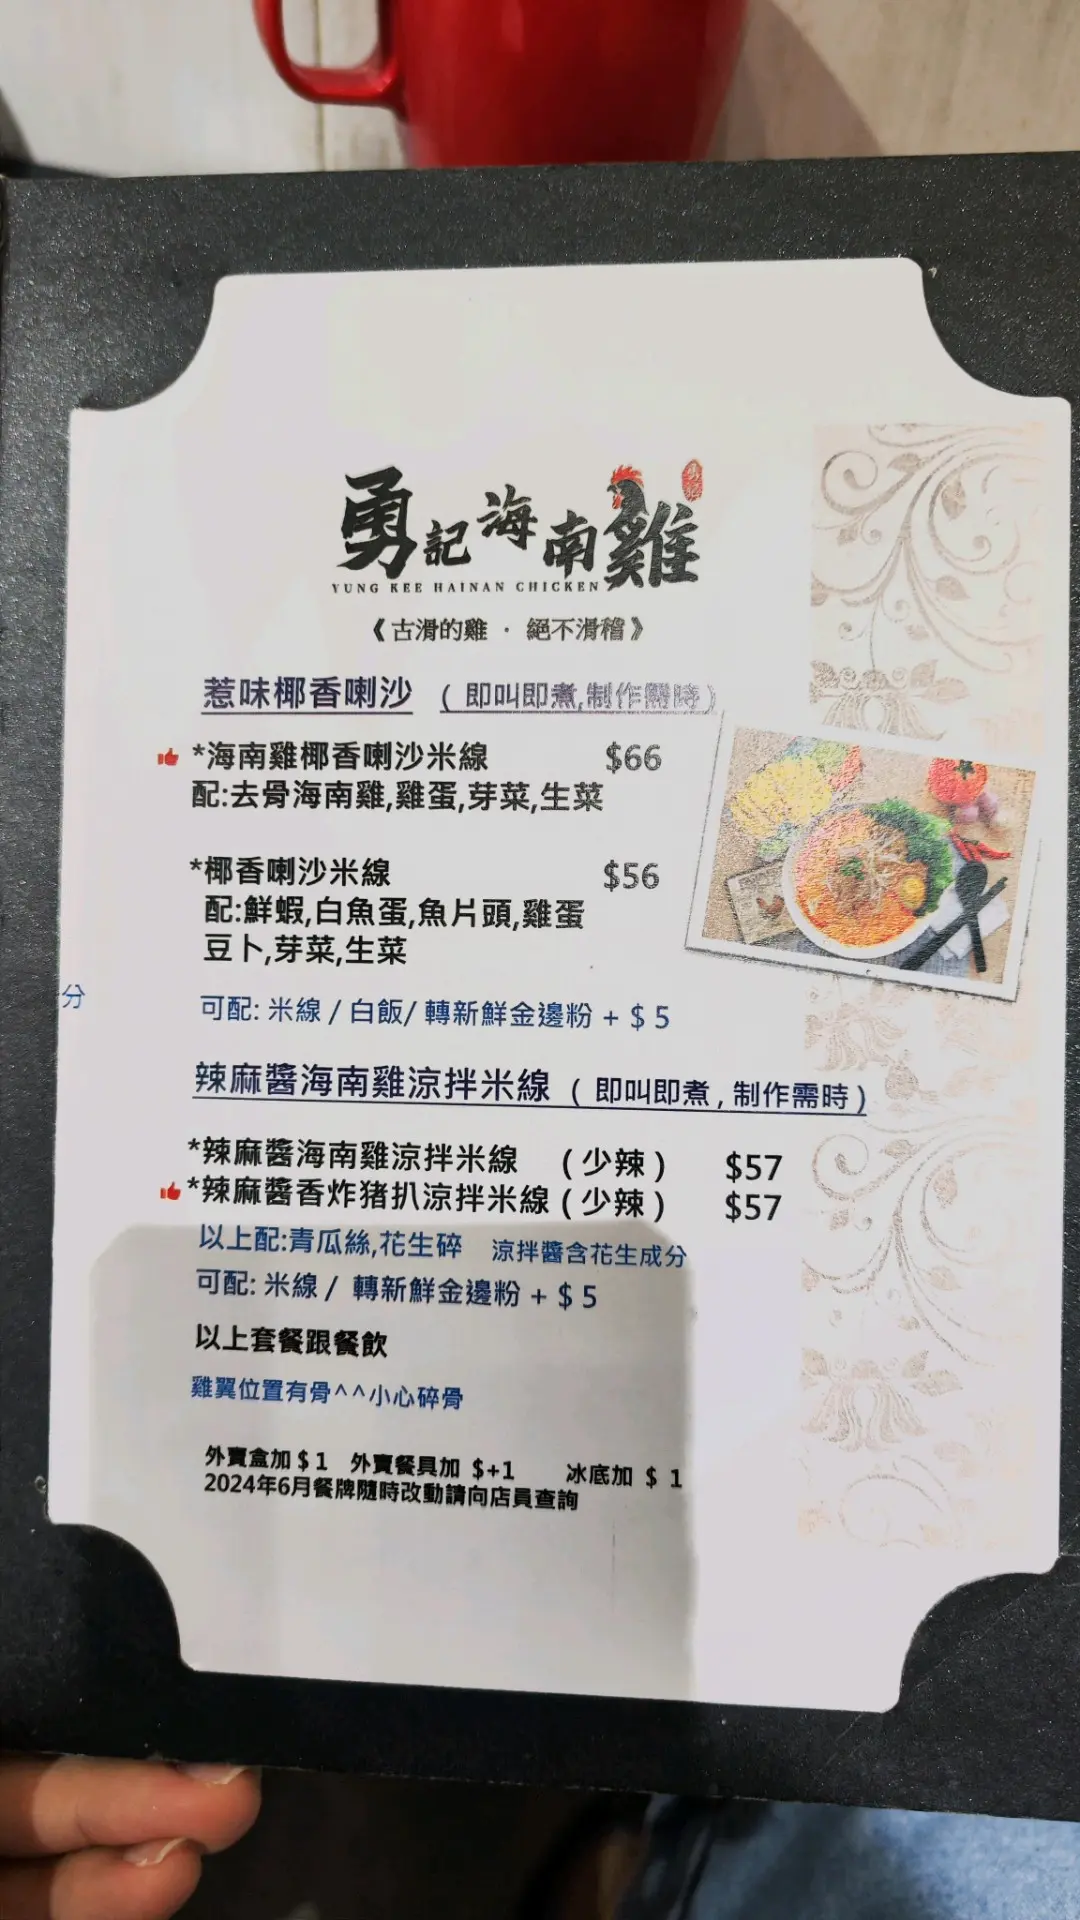 勇記海南雞
勇記
YUNG KEE HAINAN CHICKEN
《古滑的雞 · 絕不滑稽》
惹味椰香喇沙 (即叫即煮,制作需時)
*海南雞椰香喇沙米線 $66
配:去骨海南雞,雞蛋,芽菜,生菜
*椰香喇沙米線 $56
配:鮮蝦,白魚蛋,魚片頭,雞蛋
豆卜,芽菜,生菜
分
可配: 米線 / 白飯/ 轉新鮮金邊粉 + $ 5
辣麻醬海南雞涼拌米線 ( 即叫即煮 , 制作需時 )
*辣麻醬海南雞涼拌米線 ( 少辣 ) $57
*辣麻醬香炸猪扒涼拌米線 ( 少辣 ) $57
以上配:青瓜絲,花生碎 涼拌醬含花生成分
可配: 米線 / 轉新鮮金邊粉 + $ 5
以上套餐跟餐飲
雞翼位置有骨^^小心碎骨
外賣盒加 $ 1 外賣餐具加 $+1 冰底加 $ 1
2024年6月餐牌隨時改動請向店員查詢